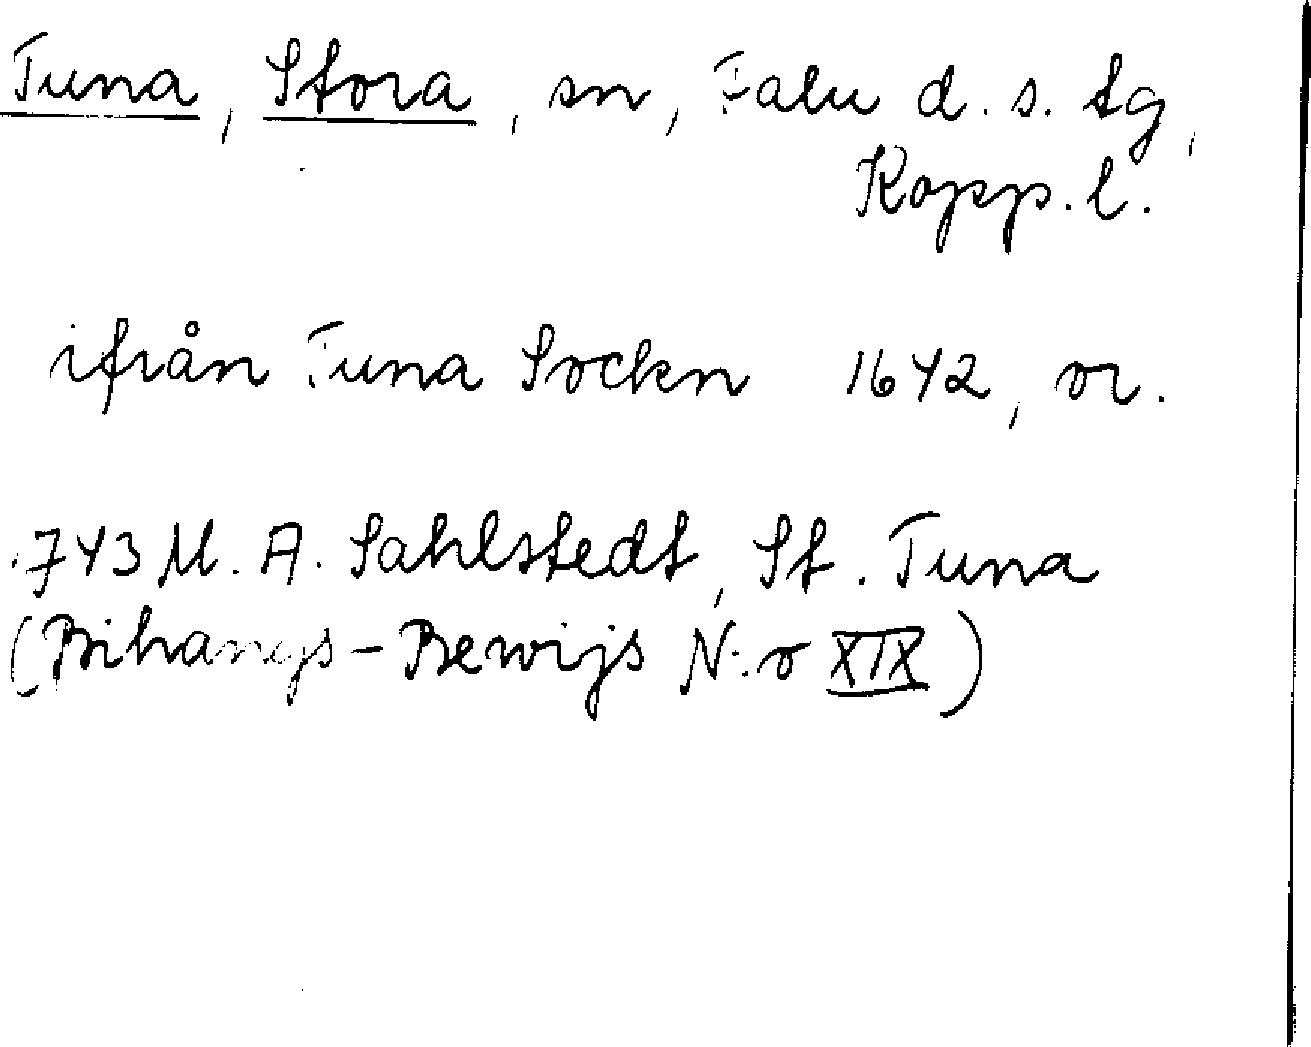 Tuna, Stora, sn, Falu d. s. tg,
Kopp. l.
ifrån Tuna Sockn 1642, or.
743 M. A. Sahlstedt, St. Tuna
(Bihangs-Bewijs N:o XIX)